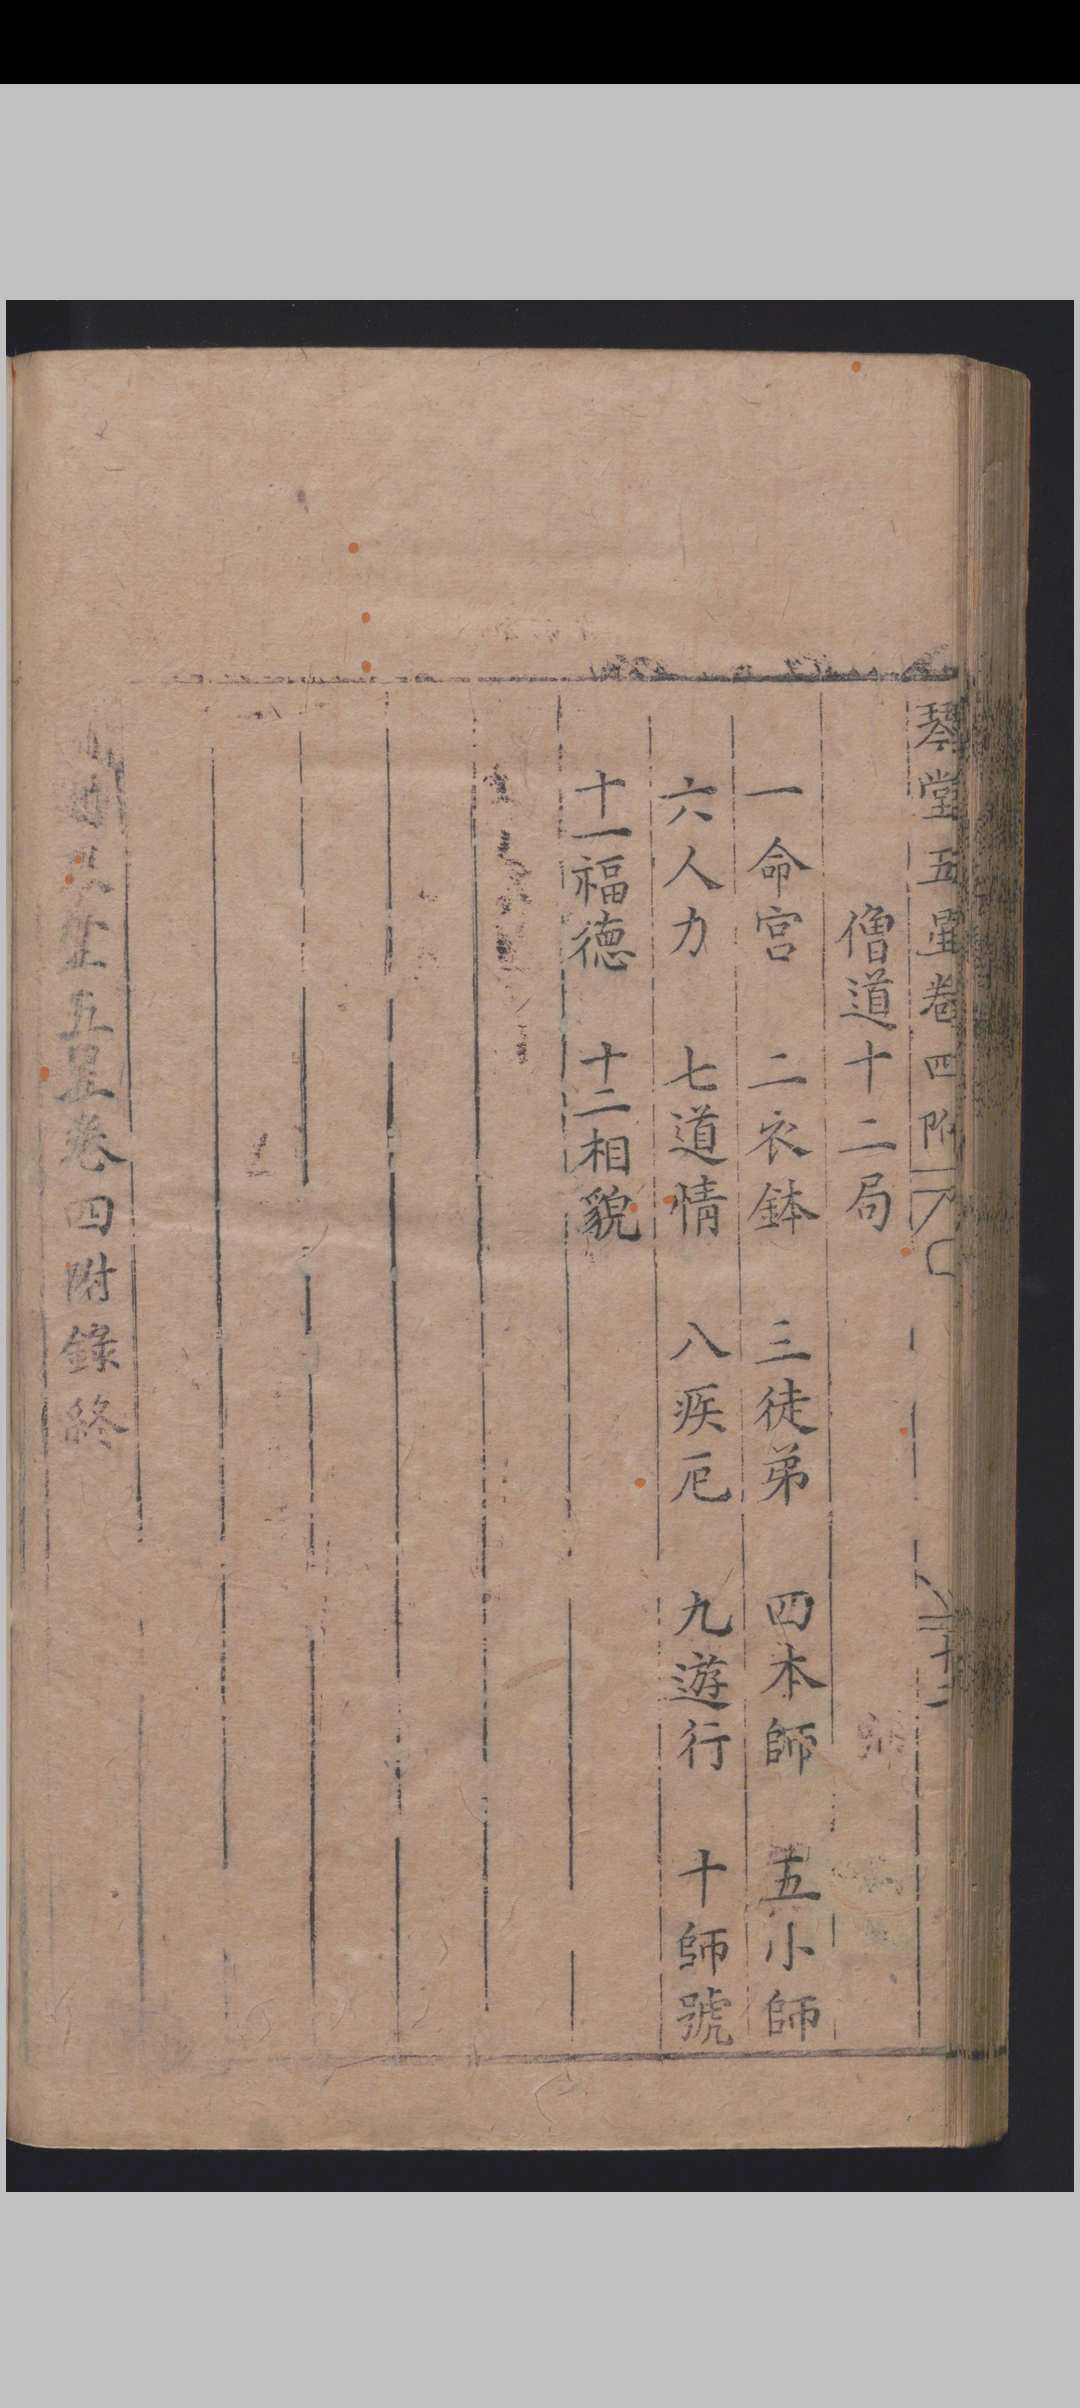 琴堂五星卷四附
十二
僧道十二局
一命宮　二衣鉢　三徒弟　四本師　五小師
六人力　七道情　八疾厄　九遊行　十師號
十一福德　十二相貌
堂五星卷四附錄終